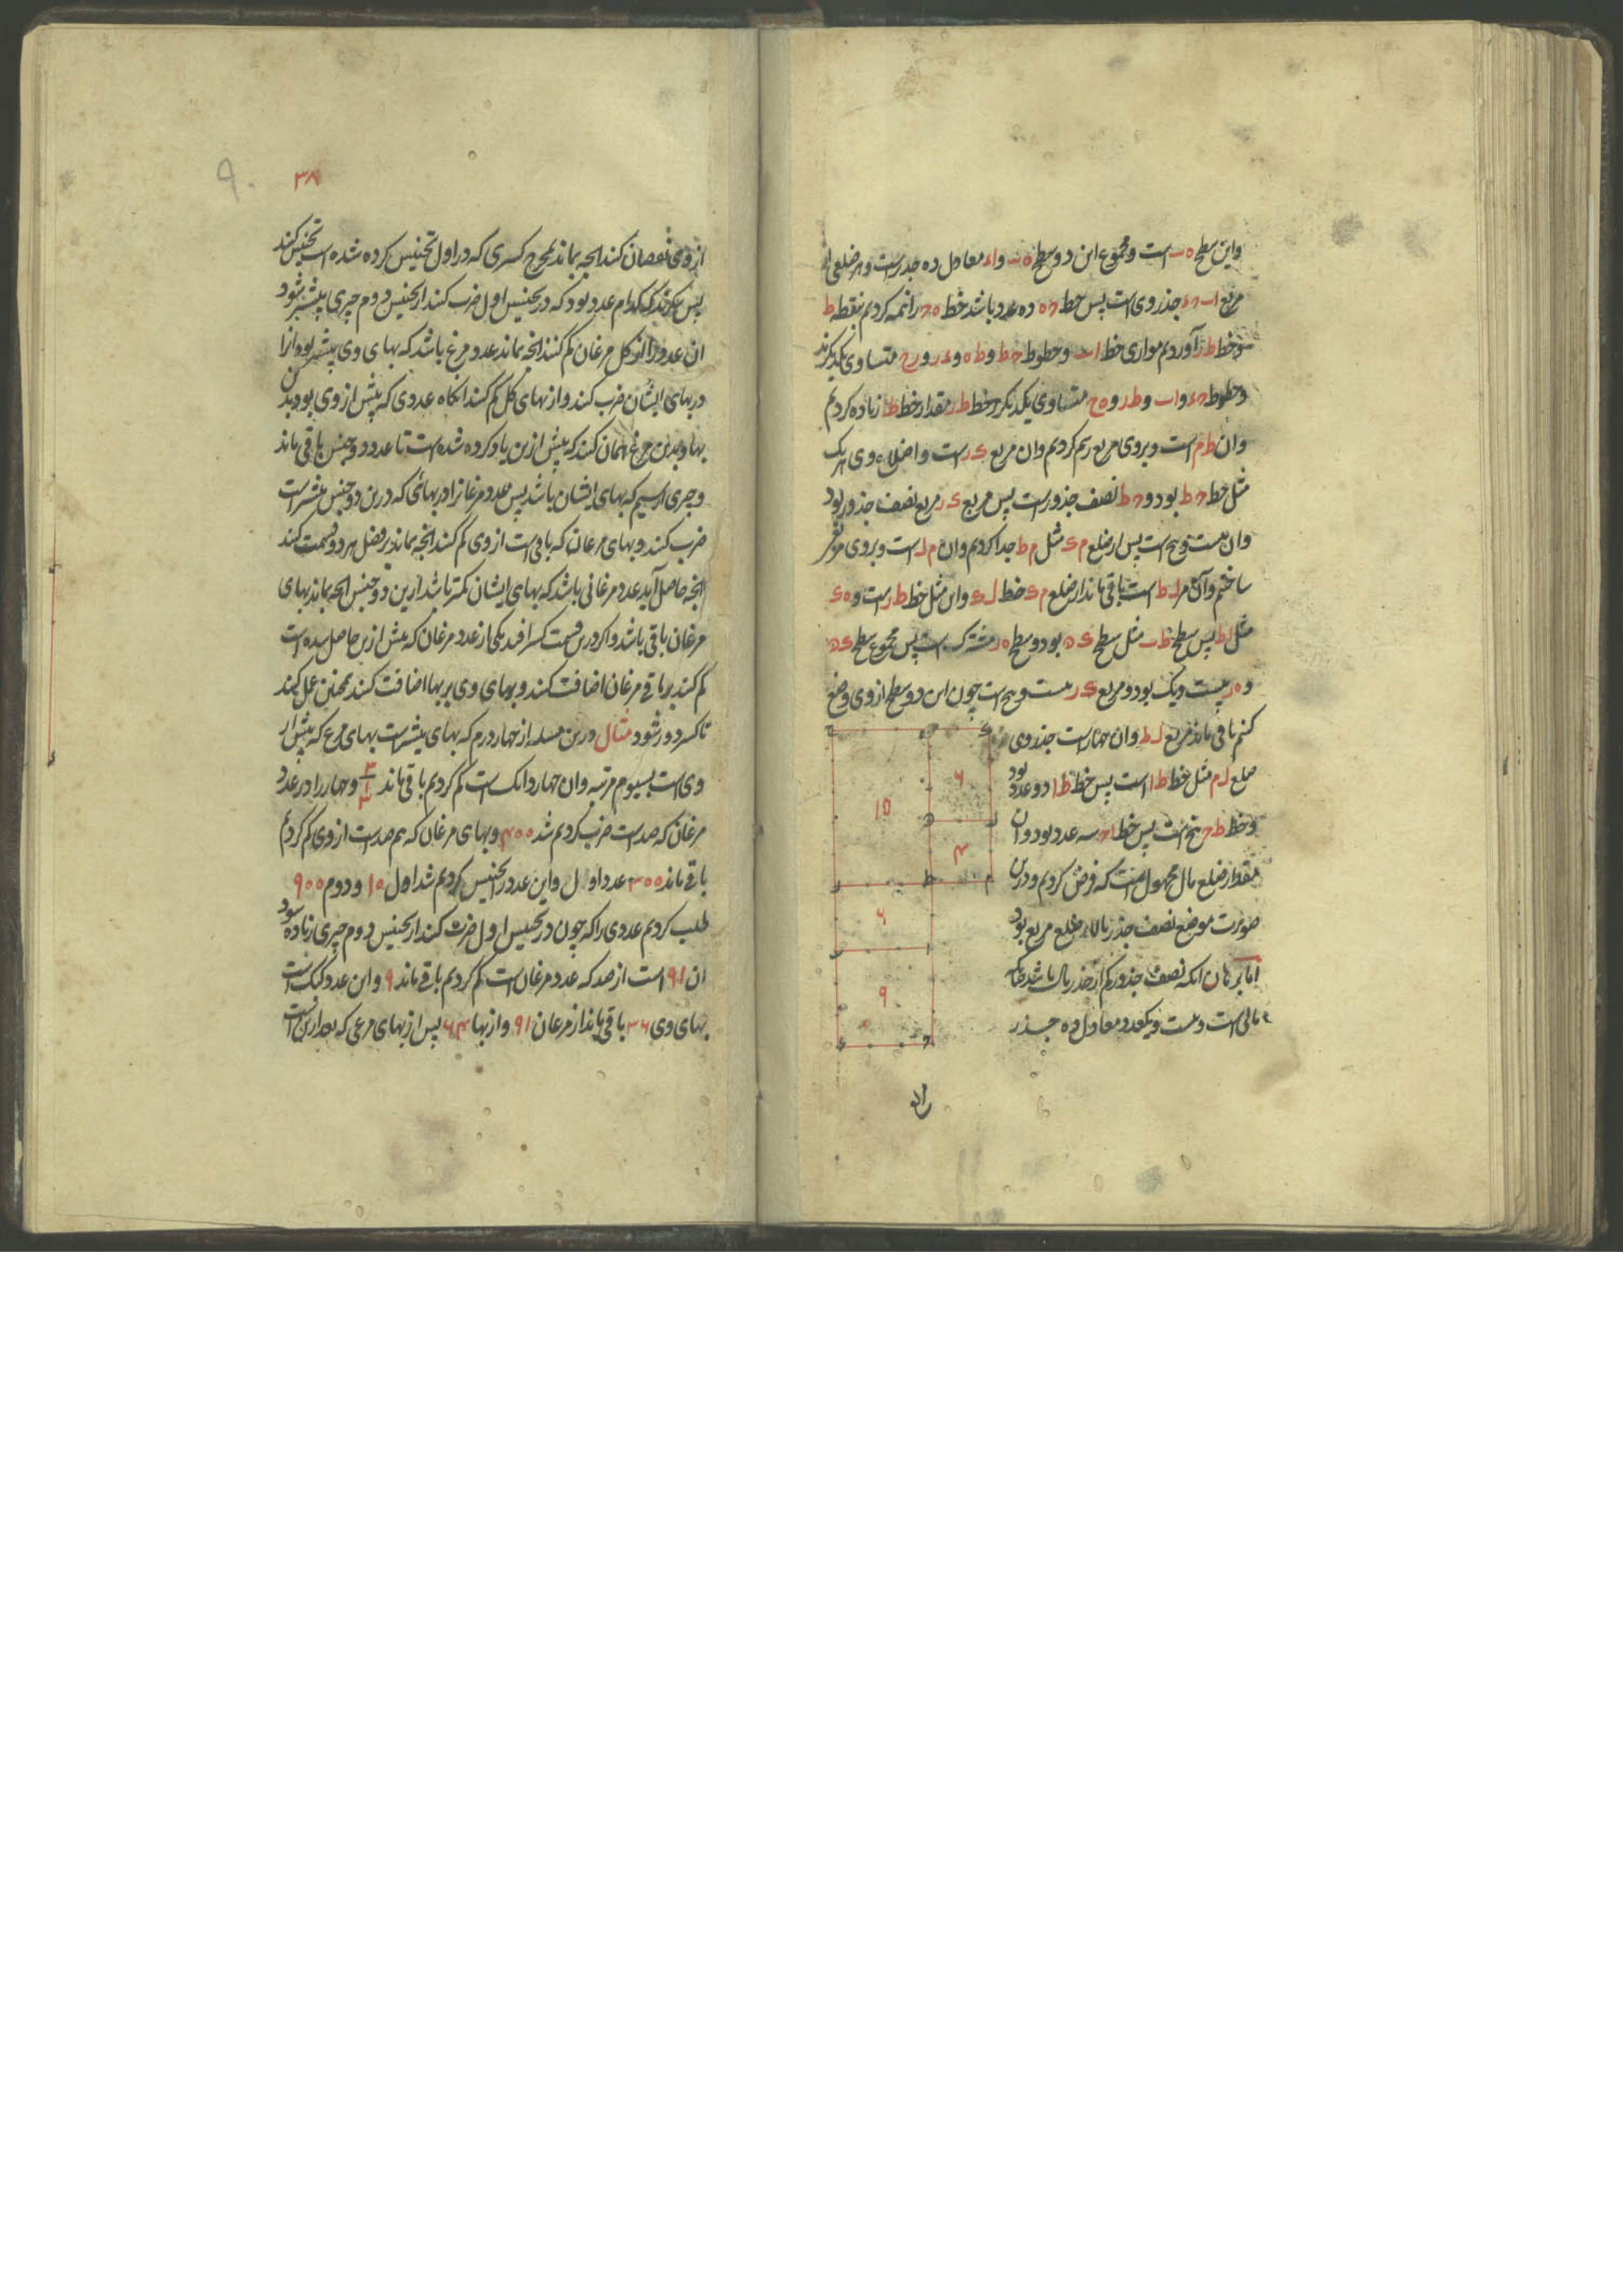 واین سطح ه ب است و مجموع این دو سطح ه ب و ا ء معادل ده جذر است و هر ضلعی از
مربع ا ب ح ء جذر وی است پس خط ح ه ده عدد باشد خط ه ح را نیمه کردیم بنقطه ط
و خط ط ر آوردیم موازی خط ا ب و خطوط ح ط و ط ه و ء ر و ر ح متساوی یکدیگرند
و خطوط ح ء و ا ب و ط ر و ه ح متساوی یکدیگر و خط ط ر مقدار خط ط ا زیاده کردیم
وان ط م است و بروی مربع رسم کردیم وان مربع ک ر است و اضلاع وی هر یک
مثل خط ح ط بود و ح ط نصف جذور است پس مربع ک ر مربع نصف جذور بود
وان بیست و پنج است پس از ضلع م ک مثل م ط جدا کردیم وان م ل است و بروی مربع
ساختیم وآن مر ل ط است باقی ماند از ضلع م ک خط ل ک واین مثل خط ط ر است و ه ک
مثل ا ط پس سطح ط ب مثل سطح ک ه بود و سطح ه ر مشترک است پس مجموع سطح ک ه
و ه ر بیست و یک بود و مربع ک ر بیست و پنج است چون این دو سطح از وی وضع
کنیم باقی ماند مربع ل ط وان چهار است جذر وی
ضلع ل م مثل خط ط ا است پس خط ط ا دو عدد بود
و خط ط ح پنج است پس خط ا ح سه عدد بود وآن
مقدار ضلع مال مجهول است که فرض کردیم و درین
صورت موضع نصف جذر بالای ضلع مربع بود
اما برهان انکه نصف جذور کم از جذر مال باشد
مالی است و بیست و یکعدد معادل ده جذر
۶
۱۵
۴
۶
۹
۳۸
۹۰
از وی نقصان کنند انچه بماند بمخرج کسری که در اول تجنیس کرده شده است تجنیس کنند
پس بنگرند که کدام عدد بود که در تجنیس اول ضرب کنند از تجنیس دوم چیزی بیشتر شود
ان عدد را از کل مرغان کم کنند انچه بماند عدد مرغ باشد که بهای وی بیشتر بود انرا
در بهای ایشان ضرب کنند و از بهای کل کم کنند انگاه عددی که پیش از وی بود بدان
بها و بدین مرغ همان کنند که پیش ازین یاد کرده شده است تا عدد دو جنس باقی ماند
ضرب کنند و بهای مرغان که باقی است از وی کم کنند انچه بماند بر فضل هر دو قسمت کنند
انچه حاصل آید عدد مرغانی باشد که بهای ایشان کمتر باشد ازین دو جنس انچه بماند بهای
مرغان باقی باشد و اگر درین قسمت کسر افتد یکی از عدد مرغان که پیش ازین حاصل شده است
کم کنند بر باقی مرغان اضافت کنند و بهای وی بر بها اضافت کنند همچنین عمل کنند
تا کسر دور شود مثال درین مسله از چهار درم که بهای بیشتر است بهای مرغ که پیش از
وی است بسیوم مرتبه وان چهار دانک است کم کردیم باقی ماند ۳ ۱ ۳ و چهار را در عدد
مرغان که صد است ضرب کردیم شد ۴۰۰ و بهای مرغان که هم صد است از وی کم کردیم
باقی ماند ۳۰۰ عدد اول واین عدد را تجنیس کردیم شد اول ۱۰ و دوم ۹۰۰
طلب کردیم عددی را که چون در تجنیس اول ضرب کنند از تجنیس دوم چیزی زیاده شود
ان ۹۱ است از صد که عدد مرغان است کم کردیم باقی ماند ۹ واین عدد کبک است
بهای وی ۳۶ باقی ماند از مرغان ۹۱ و از بها ۶۴ پس از بهای مرغی که بعد ازین است